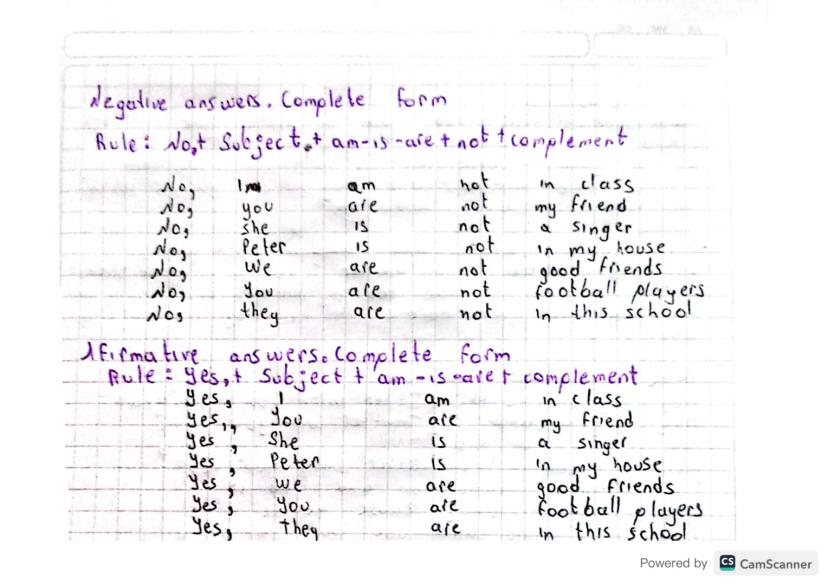 Negative answers. Complete form
Rule: No,+ Subject + am-is-are + not + complement
No, I am not in class
No, you are not my friend
No, she is not a singer
No, Peter is not in my house
No, we are not good friends
No, you are not football players
No, they are not in this school
Afirmative answers. Complete form
Rule: Yes,+ Subject + am-is-are + complement
Yes, I am in class
Yes, you are my friend
Yes, She is a singer
Yes, Peter is in my house
Yes, we are good friends
Yes, you are football players
Yes, they are in this school
Powered by CS CamScanner